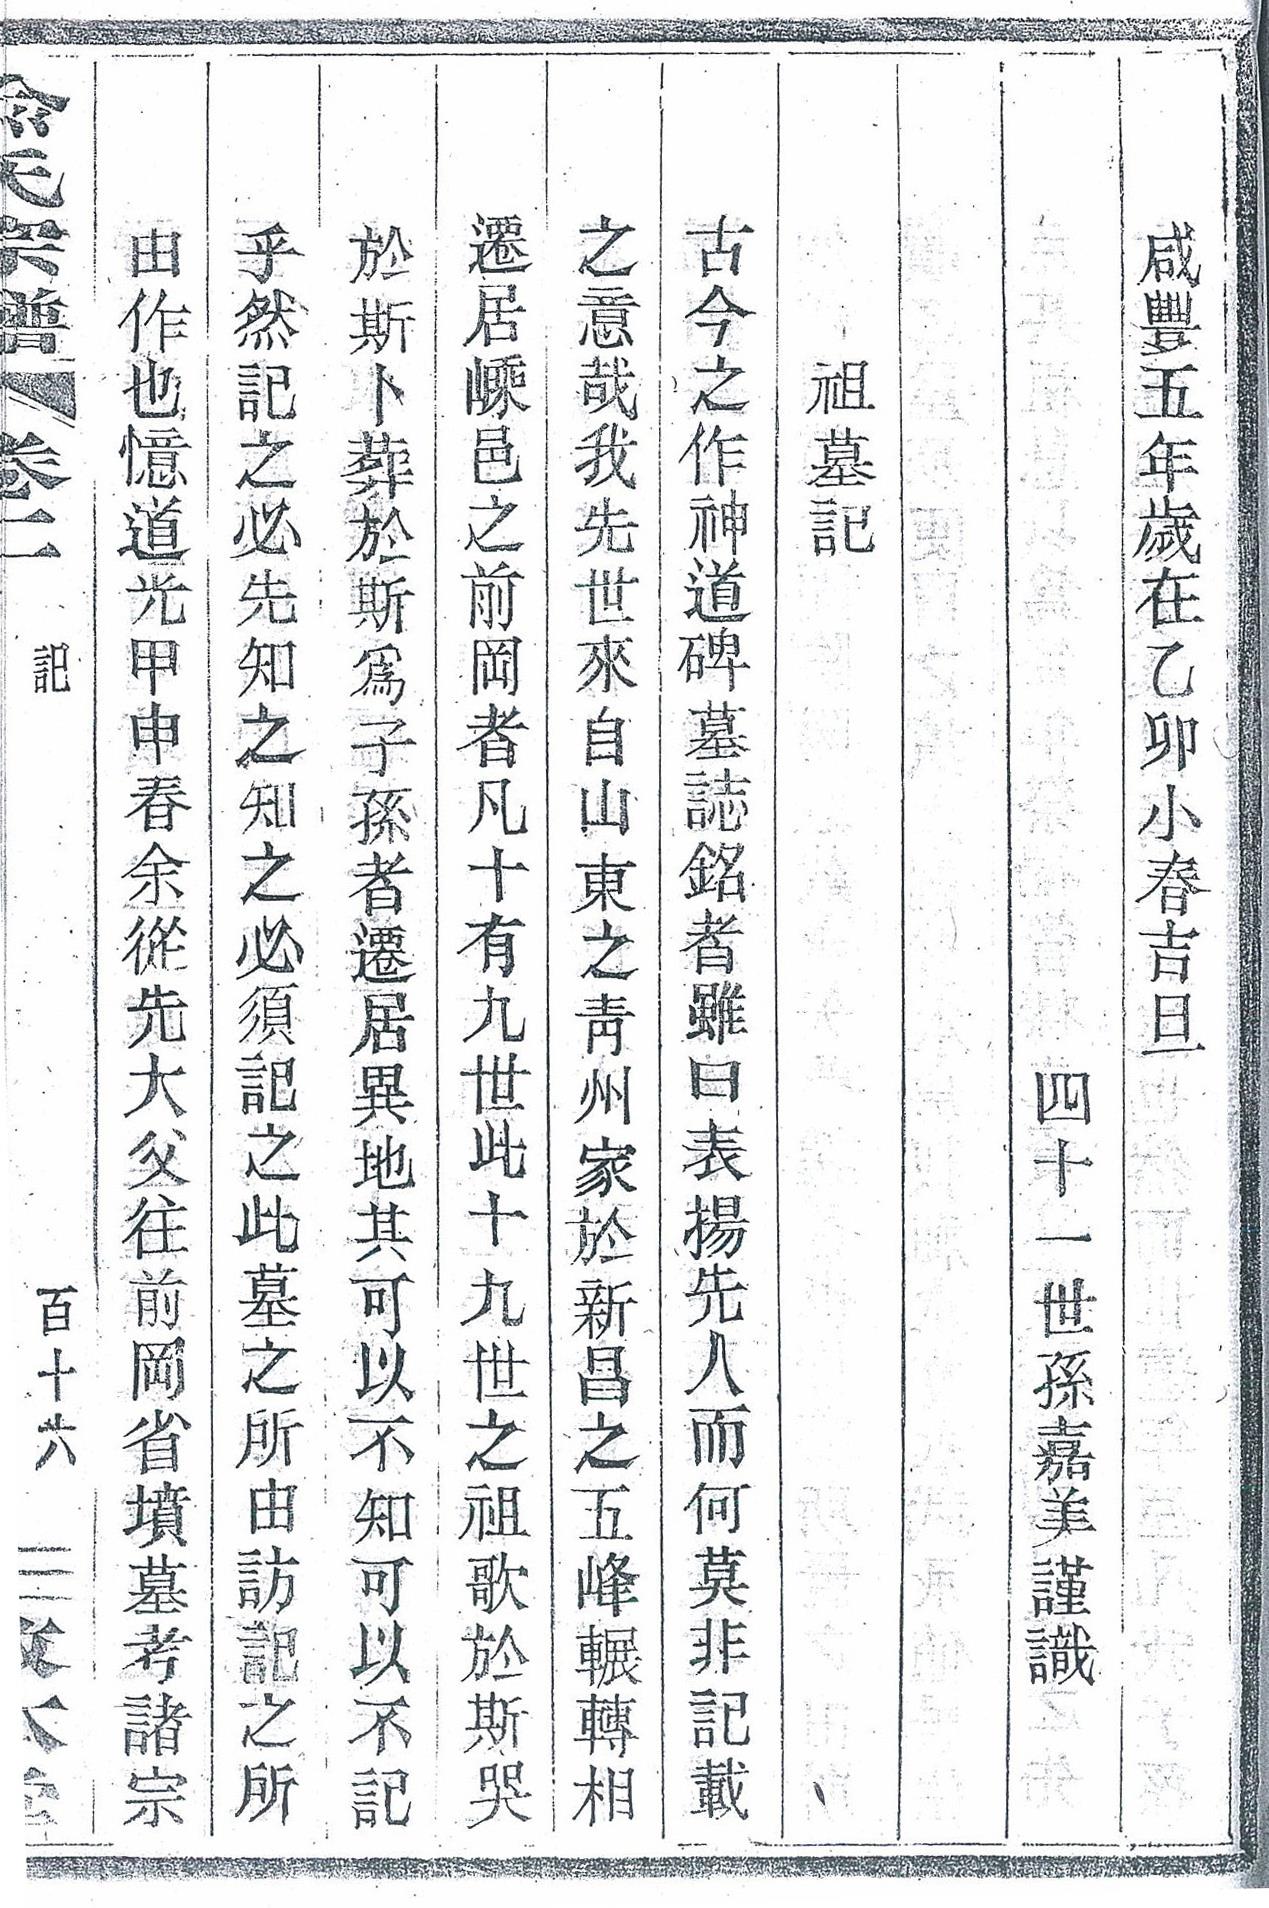 咸豐五年歲在乙卯小春吉旦
四十一世孫嘉美謹識
祖墓記
古今之作神道碑墓誌銘者雖曰表揚先人而何莫非記載
之意哉我先世來自山東之靑州家於新昌之五峰輾轉相
遷居嵊邑之前岡者凡十有九世此十九世之祖歌於斯哭
於斯卜葬於斯爲子孫者遷居異地其可以不知可以不記
乎然記之必先知之知之必須記之此墓之所由訪記之所
由作也憶道光甲申春余從先大父往前岡省墳墓考諸宗
氏宗譜 卷二 記 百十六